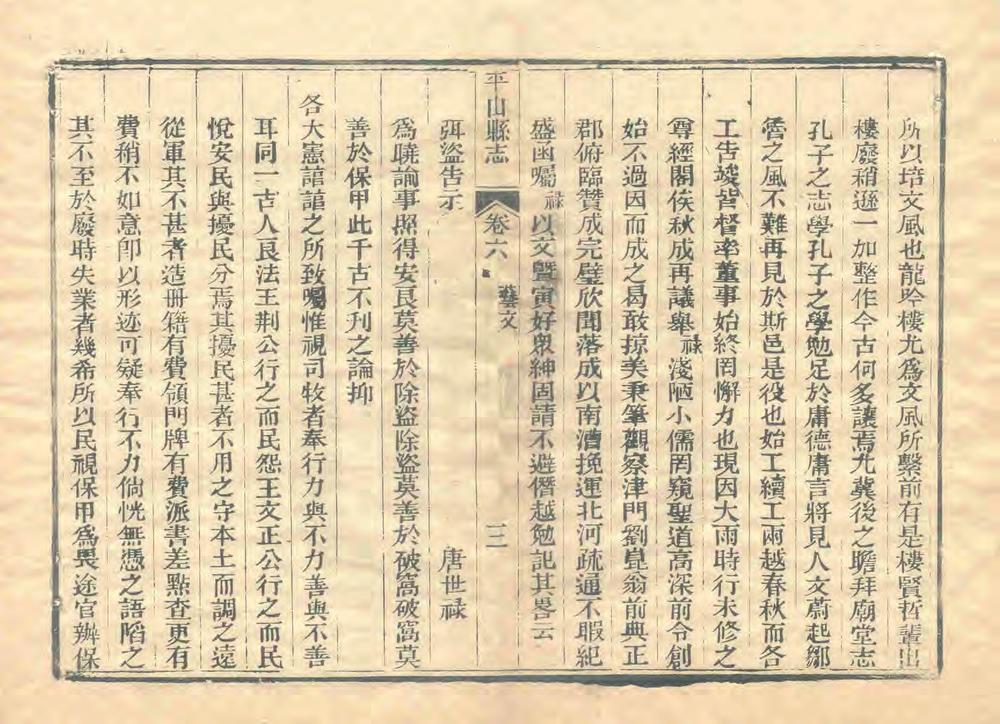 所以培文風也龍吟樓尤爲文風所繫前有是樓賢哲輩出
樓廢稍遜一加整作今古何多讓焉尤冀後之瞻拜廟堂志
孔子之志學孔子之學勉足於庸德庸言將見人文蔚起鄒
魯之風不難再見於斯邑是役也始工續工兩越春秋而各
工告竣皆督率董事始終罔懈力也現因大雨時行未修之
尊經閣俟秋成再議舉祿淺陋小儒罔窺聖道高深前令創
始不過因而成之曷敢掠美秉筆觀察津門劉覺翁前典正
郡俯臨贊成完璧欣聞落成以南漕挽運北河疏通不暇紀
盛函囑祿以文曁寅好衆紳固請不避僭越勉記其畧云
平山縣志 卷六 藝文 三
弭盜告示 唐世祿
爲曉諭事照得安良莫善於除盜除盜莫善於破窩破窩莫
善於保甲此千古不刋之論抑
各大憲諳諳之所致囑惟視司牧者奉行力與不力善與不善
耳同一古人良法王荆公行之而民怨王文正公行之而民
悅安民與擾民分焉其擾民甚者不用之守本土而調之遠
從軍其不甚者造册籍有費領門牌有費派書差點查更有
費稍不如意卽以形迹可疑奉行不力倘恍無憑之語陷之
其不至於廢時失業者幾希所以民視保甲爲畏途官辦保